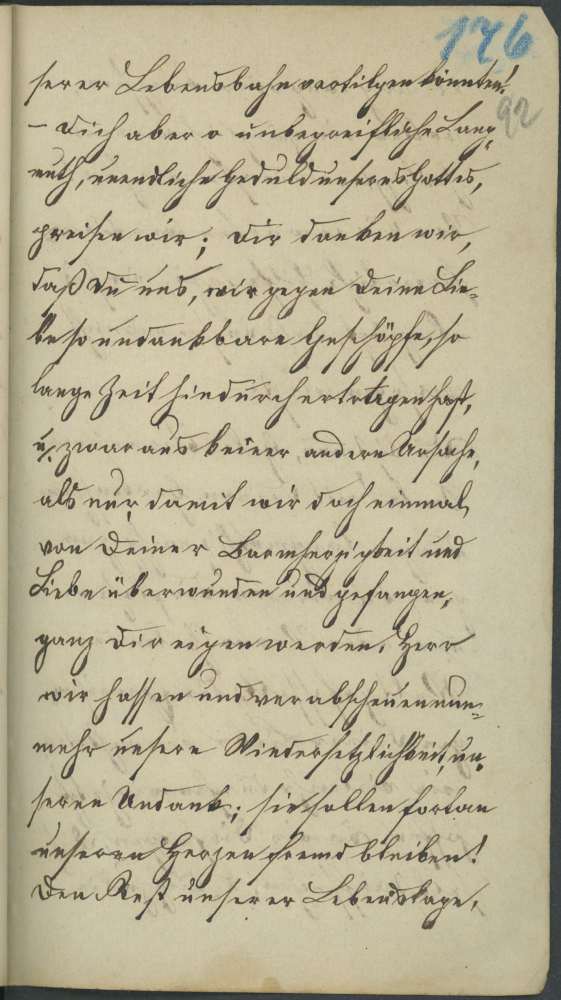 176
92
serer Lebensbahn vertilgen könnten!
– Dich aber o unbegreifliche Lang-
muth, unendliche Geduld unseres Gottes,
preisen wir; Dir danken wir,
daß Du uns, wir gegen Deine Lie-
be so undankbare Geschöpfe, so
lange Zeit hindurch ertragen hast,
u. zwar aus keiner andern Ursache,
als nur damit wir doch einmal,
von Deiner Barmherzigkeit und
Liebe überwunden und gefangen,
ganz Dir eigen werden. Herr
wir hassen und verabscheuen nun-
mehr unsere Widersetzlichkeit, un-
seren Undank; sie sollen fortan
unseren Herzen fremd bleiben!
Den Rest unserer Lebenstage,